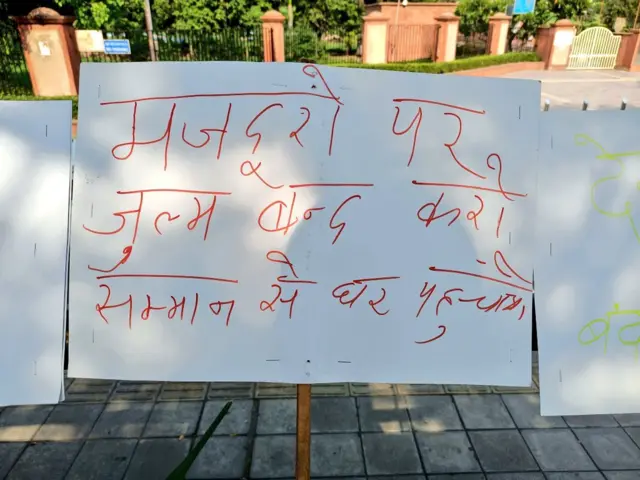 मजदूरो पर
जुल्म बन्द करो
सम्मान से घर